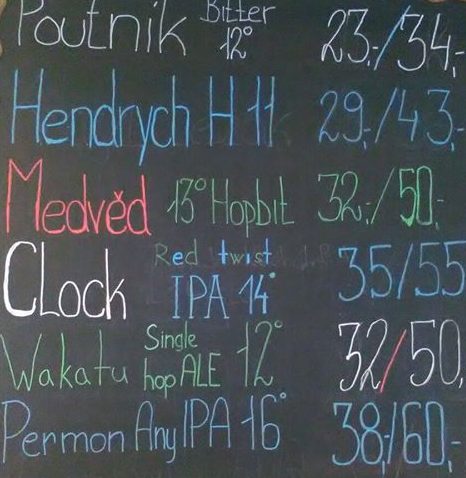 Poutník Bitter 12° 23,-/34,-
Hendrych H 11 29,-/43,-
Medvěd 13° Hopbit 32,-/50,-
Clock Red twist IPA 14° 35/55
Wakatu Single hop ALE 12° 32/50,
Permon Any IPA 16° 38,-/60,-